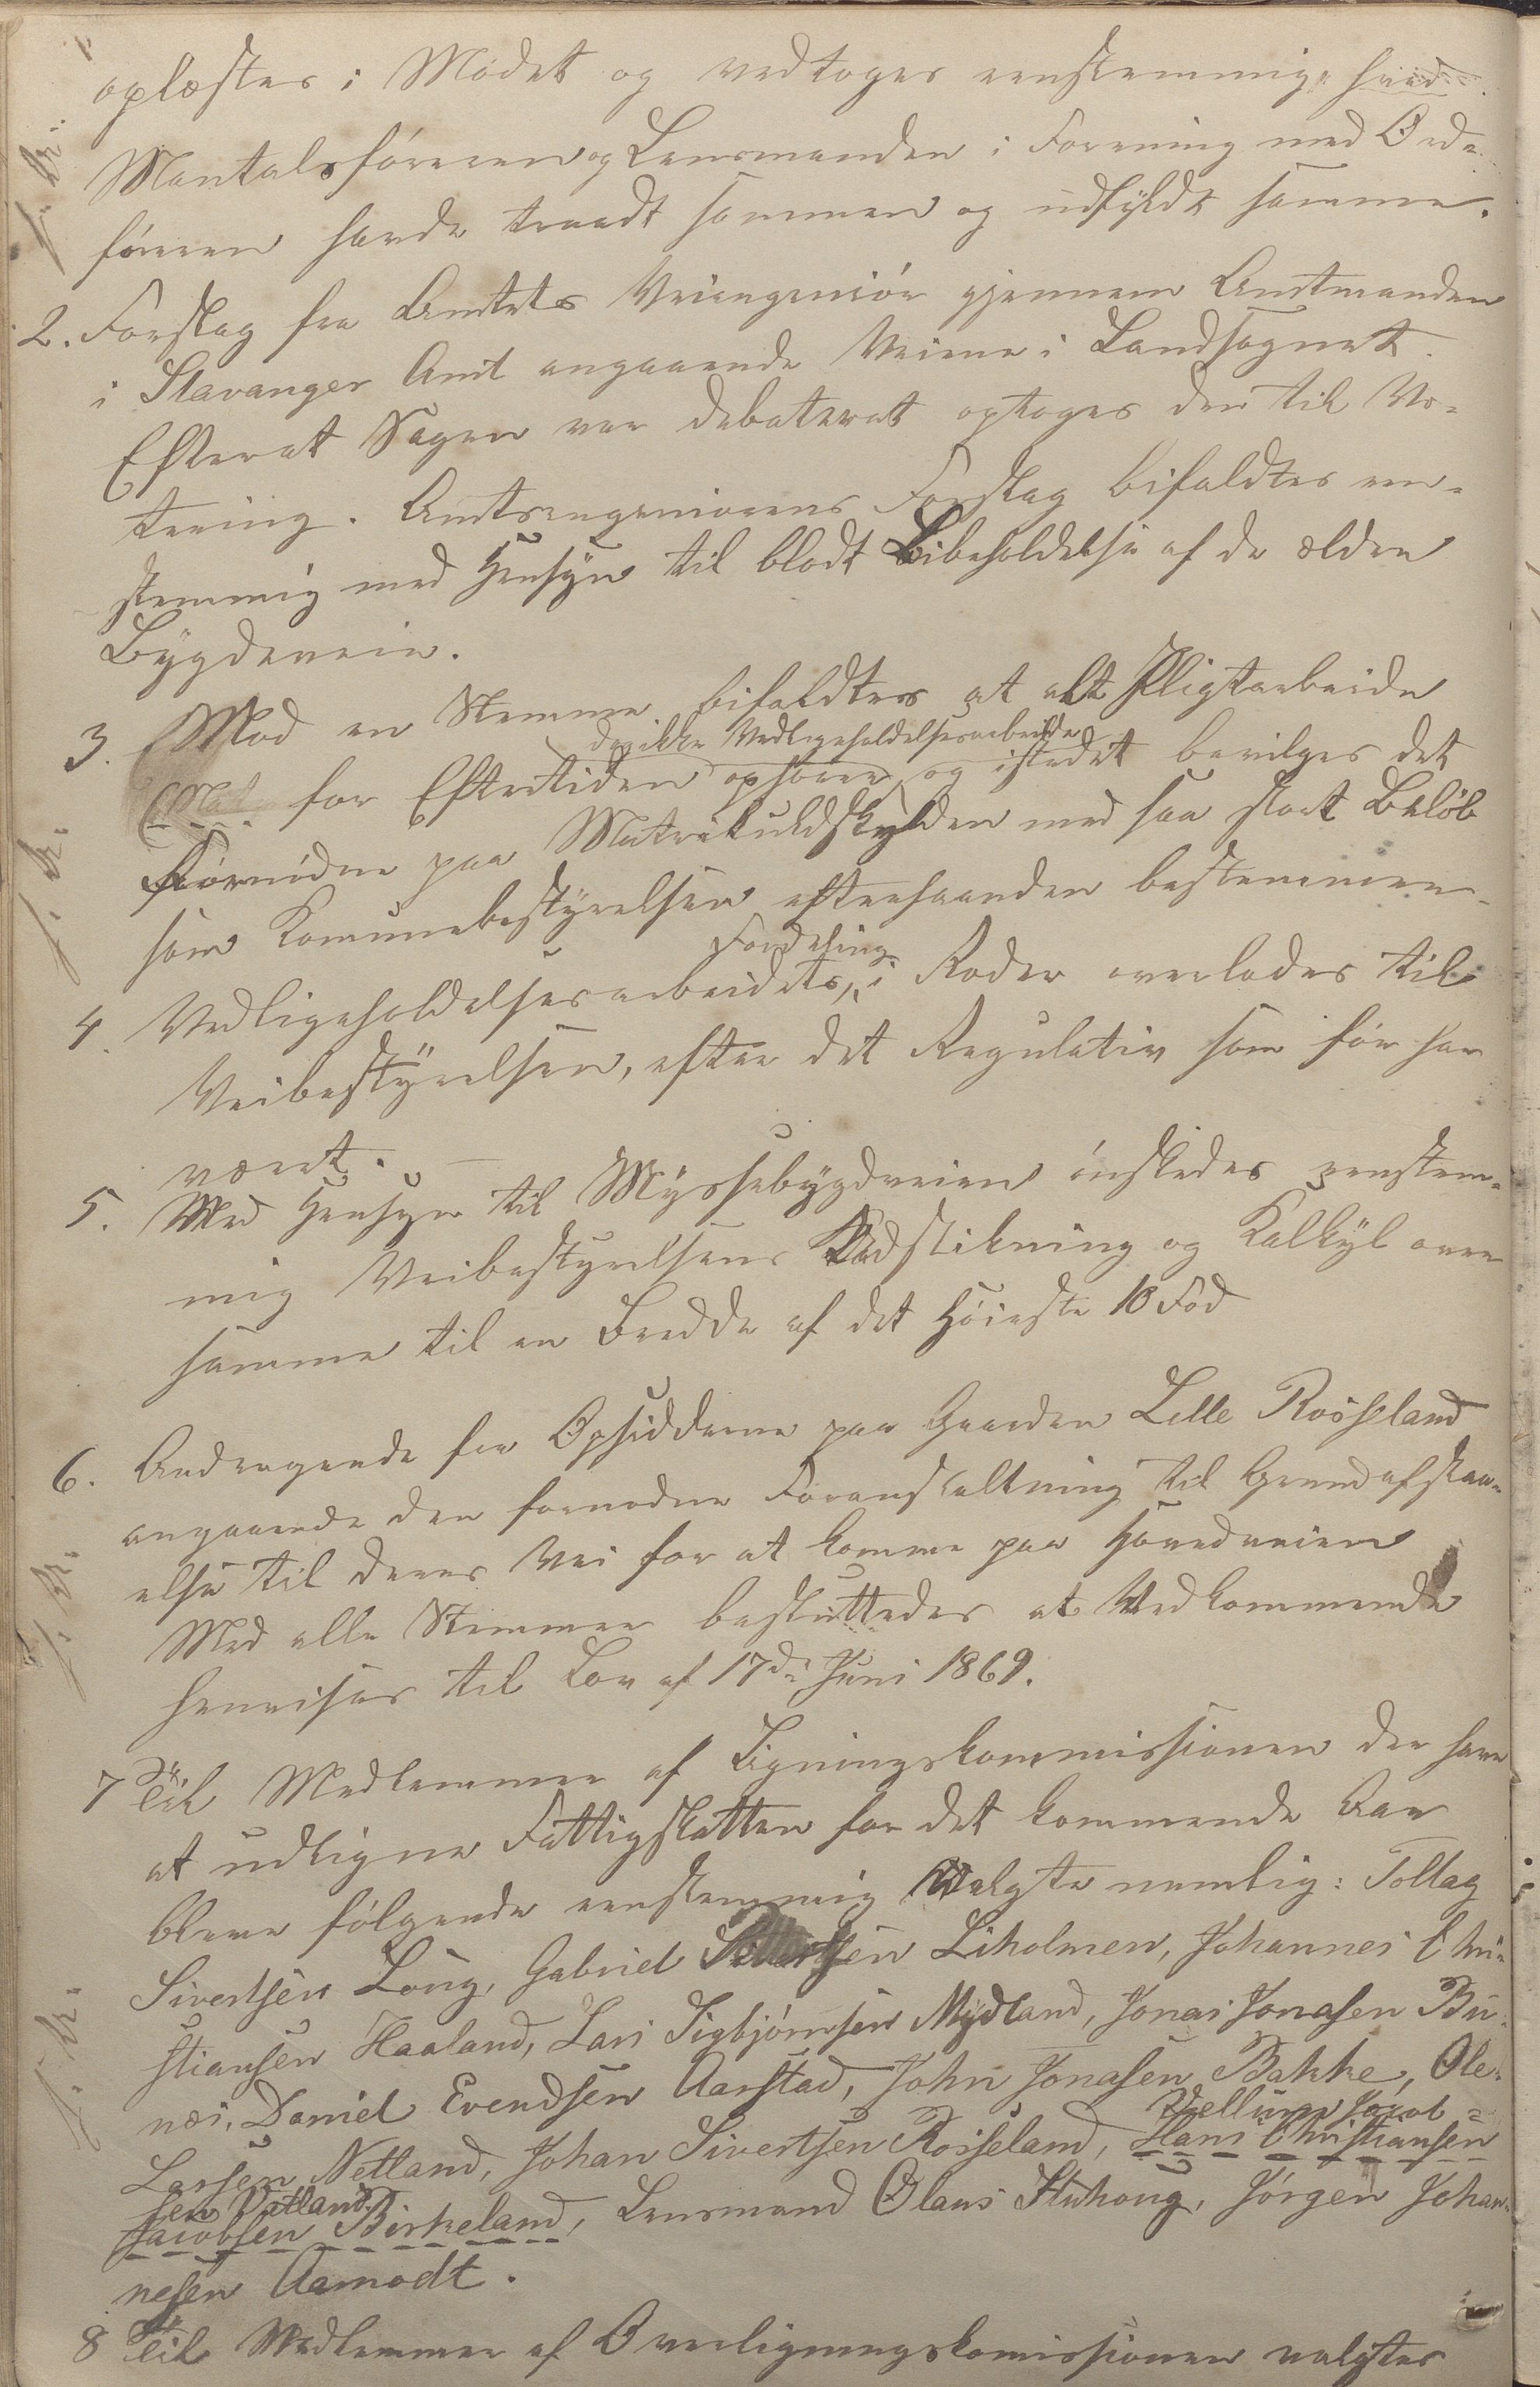 oplæstes i Mødet og vedtoges eenstemmig, hvad
Mantalsføreren og Lensmanden i Forening med Ord-
føreren havde traadt sammen og udfyldt samme.
2. Forslag fra Amtets Veiingeniør gjennem Amtmanden
i Stavanger Amt angaaende Veiene i Landsognet.
Efterat Sagen var debateret optoges den til Vo-
tering. Amtsingeniørens Forslag bifaldtes een-
stemmig med Hensyn til blodt Bibeholdelse af de ældre
Bygdeveie.
3. Mod en Stemme bifaldtes at alt Pligtarbeide
der ikke Vedligeholdelsesarbeide
for Eftertiden ophører og istedet bevilges det
fornødne paa Matrikuldskylden med saa stort Beløb
som Komunebestyrelsen efterhaanden bestemmer.
Fordeling
4. Vedligeholdelsesarbeidets, i Roder overlodes til
Veibestyrelsen, efter det Regulativ som før har
været.
5. Med Hensyn til Myssebygdveien ønskedes eenstem-
mig Veibestyrelsens Udstikning og Kalkyl over
samme til en Bredde af det Høieste 10 Fod
6. Andragende fra Opsidderne paa Gaarden Lille Rosseland
angaaende den fornødne Foranstaltning til Grundafstaa-
else til deres Vei for at komme paa Hovedveien
Med alle Stemmer besluttedes at Vedkommende
henvises til Lov af 17de Juni 1869.
7 Til Medlemmer af Ligningskommissionen der have
at udligne Fattigskatten for det kommende Aar
bleve følgende eenstemmig Valgte nemlig: Tollag
Sivertsen Long, Gabriel Sivertsen Liholmen, Johannes Chri-
stiansen Haaland, Lars Sigbjørnsen Mydland, Jonas Jonasen Bu-
næs, Daniel Evendsen Aarstad, John Jonasen Bakke, Ole
Vellum Jacob-
Larsen Netland, Johan Sivertsen Rosseland, Hans Christiansen
sen Vatland
Jacobsen Birkeland, Lensmand Olaus Stuhoug, Jørgen Johan-
nesen Aamodt.
8 Til Medlemmer af Overligningskomissionen valgtes